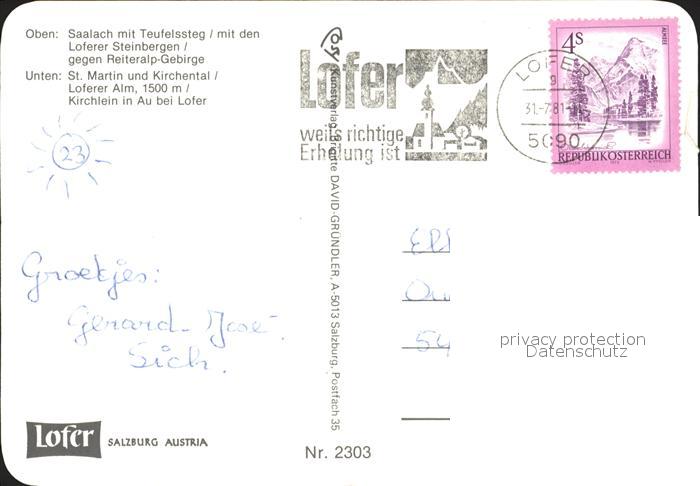 Oben: Saalach mit Teufelssteg / mit den
Loferer Steinbergen /
gegen Reiteralp-Gebirge
Unten: St. Martin und Kirchental /
Loferer Alm, 1500 m /
Kirchlein in Au bei Lofer
23
Groetjes:
Gerard - José.
Sich.
Lofer SALZBURG AUSTRIA
Cosy Kunstverlag Brigitte DAVID-GRÜNDLER, A-5013 Salzburg, Postfach 35
Nr. 2303
Lofer
weil's richtige
Erholung ist
LOFER
31.-7.81
5090
4S
ALMSEE
REPUBLIK ÖSTERREICH
54
privacy protection
Datenschutz